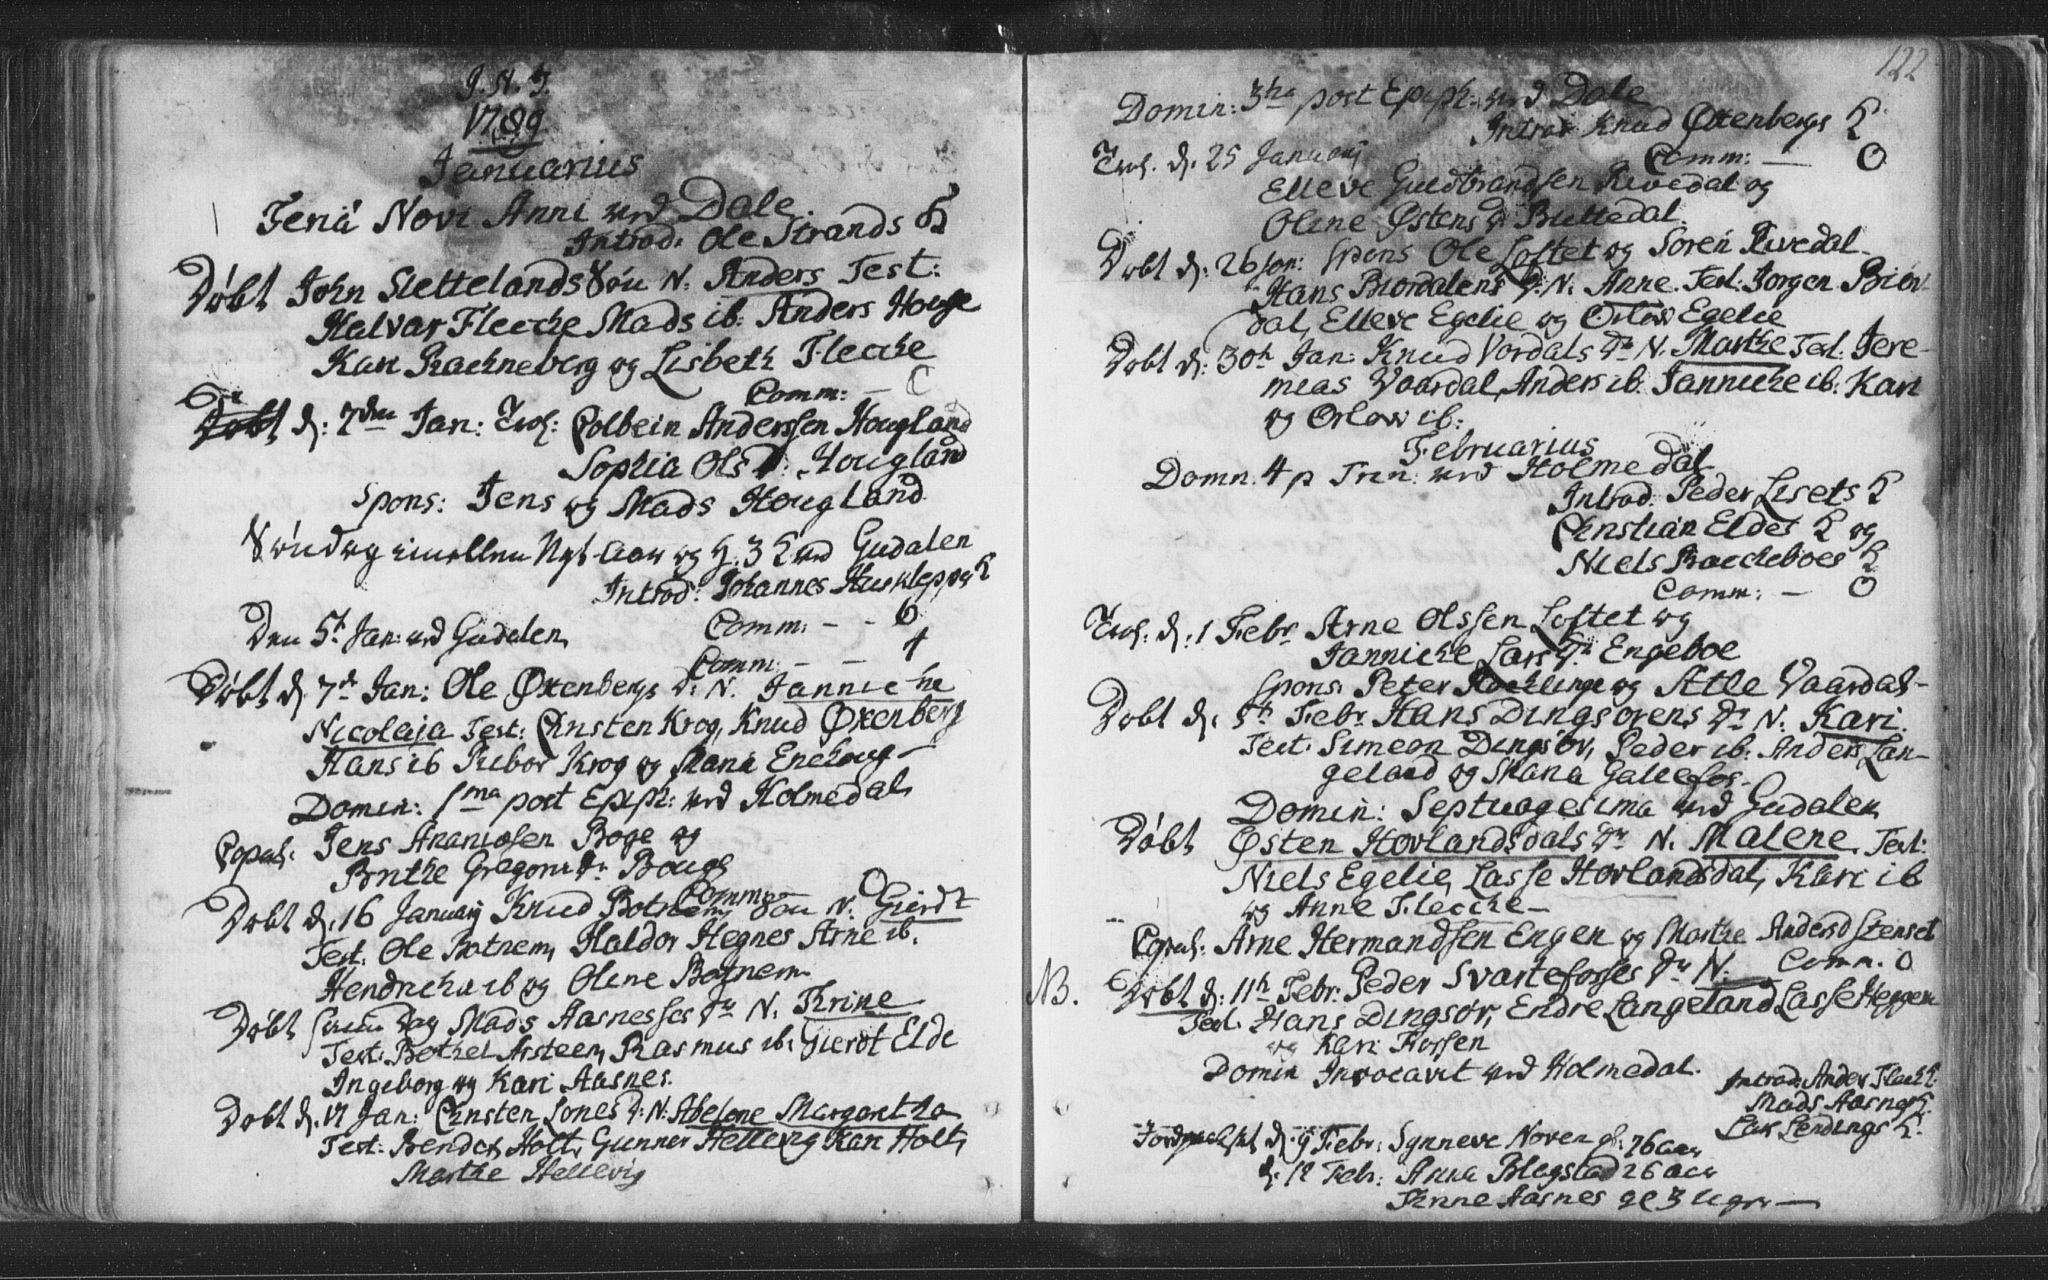 J. N. J.
1789
Januarius
Feriâ Novi Anni ved Dale
Introd: Ole Strands K
Døbt John Slettelands Søn N. Anders Test:
Halvar Flecke Mads ib: Anders Houge
Kari Rackneberg og Lisbeth Flecke
Comm: — O
d: 7den Jan: Trol: Colbein Anderssen Hougland
Sophia Ols D: Hougland
Spons: Jens og Mads Hougland
Søndag imellem Nyt aar og H. 3 K ved Gudalen
Introd: Johannes Huusklepper K
Comm: - - 6
Den 5t Jan: ved Gudalen
Comm: - - 4
Døbt d: 7de Jan: Ole Øxenbergs D: N. Jannic-he
Nicolaja Test: Christen Krog, Knud Øxenberg
Hans ib Rebor Krog og Maria
Domin: 1ma post Epiph: ved Holmedal
Copul: Jens Ananiasen Boge og
Brithe Gregorii Dr Bouge
Comm: O
Døbt d: 16 Januarij Knud Botnens Søn N. Gierdt
Test: Ole Botnem, Haldor Hegnes Arne ib.
Hendricha ib og Oline Botnem
Døbt samme Dag Mads Aasnesses Dr N. Thrine
Test: Bothel Arsteen, Rasmus ib: Gierdt Elde
Ingeborg og Kari Aasnes.
Døbt d: 17 Jan: Christen Lones D: N: Abelone Margaretha
Test: Bendix Holt, Gunner Hellevig Kari Holt,
Marthe Hellevig
122
Domin: 3tia post Epiph: ved Dale
Introd Knud Øxenbergs K
Comm: — O
Trol. d: 25 Januarij
Elleve Guldbrandsen Rivedal og
Oline Østens Dr Buttedal.
Spons Ole Loftet og Søren Rivedal
Døbt d: 26 Jan:
Hans Biordalens D: N. Anne. Test: Jorgen Biør-
dal, Elleve Egelie og Orlow Egelie
Døbt d: 30te Jan: Knud Vordals Dr N. Marthe Test: Jere-
mias Vaardal, Anders ib: Jannicke ib: Kari
og Orlow ib:
Februarius
Domn. 4 p Trin: ved Holmedal
Introd: Peder Lisets K
Christian Eldes K og
Niels Raeckeboes K
Comm: — O
Trol: d: 1 Febr Arne Olssen Loftet og
Jannicke Lars Dr Engeboe
Spons: Peter og Atle Vaardal-
Døbt d: 5t Febr. Hans Dingsørens Dr N. Kari.
Test: Simeon Dingsør, Peder ib: Anders Lan-
geland og Maria
Domin: Septuagesima ved Gudalen
Døbt Østen Hovlandsdals Dr N. Malene. Test:
Niels Egelie, Lasse Hovlandsdal, Kari ib
og Anne Flecke—
Copul: Arne Hermandsen Engen og Marthe Anders D Stenset
Comm. O
NB. Døbt d: 11te Febr: Peder Svartefosses Dr N.
Test. Hans Dingsør, Endre Langeland Lasse
og Kari Fossen
Domin Invocavit ved Holmedal.
Introd: Anders Flecke K
Mads Aasnes K.
Lars Lendings K.
Jordpaakast d: 9 Febr: Synneve Noven gl: 76 aar
d: 12 Febr: Anna 26 aar
Thrine Aasnes gl 3 Uger —